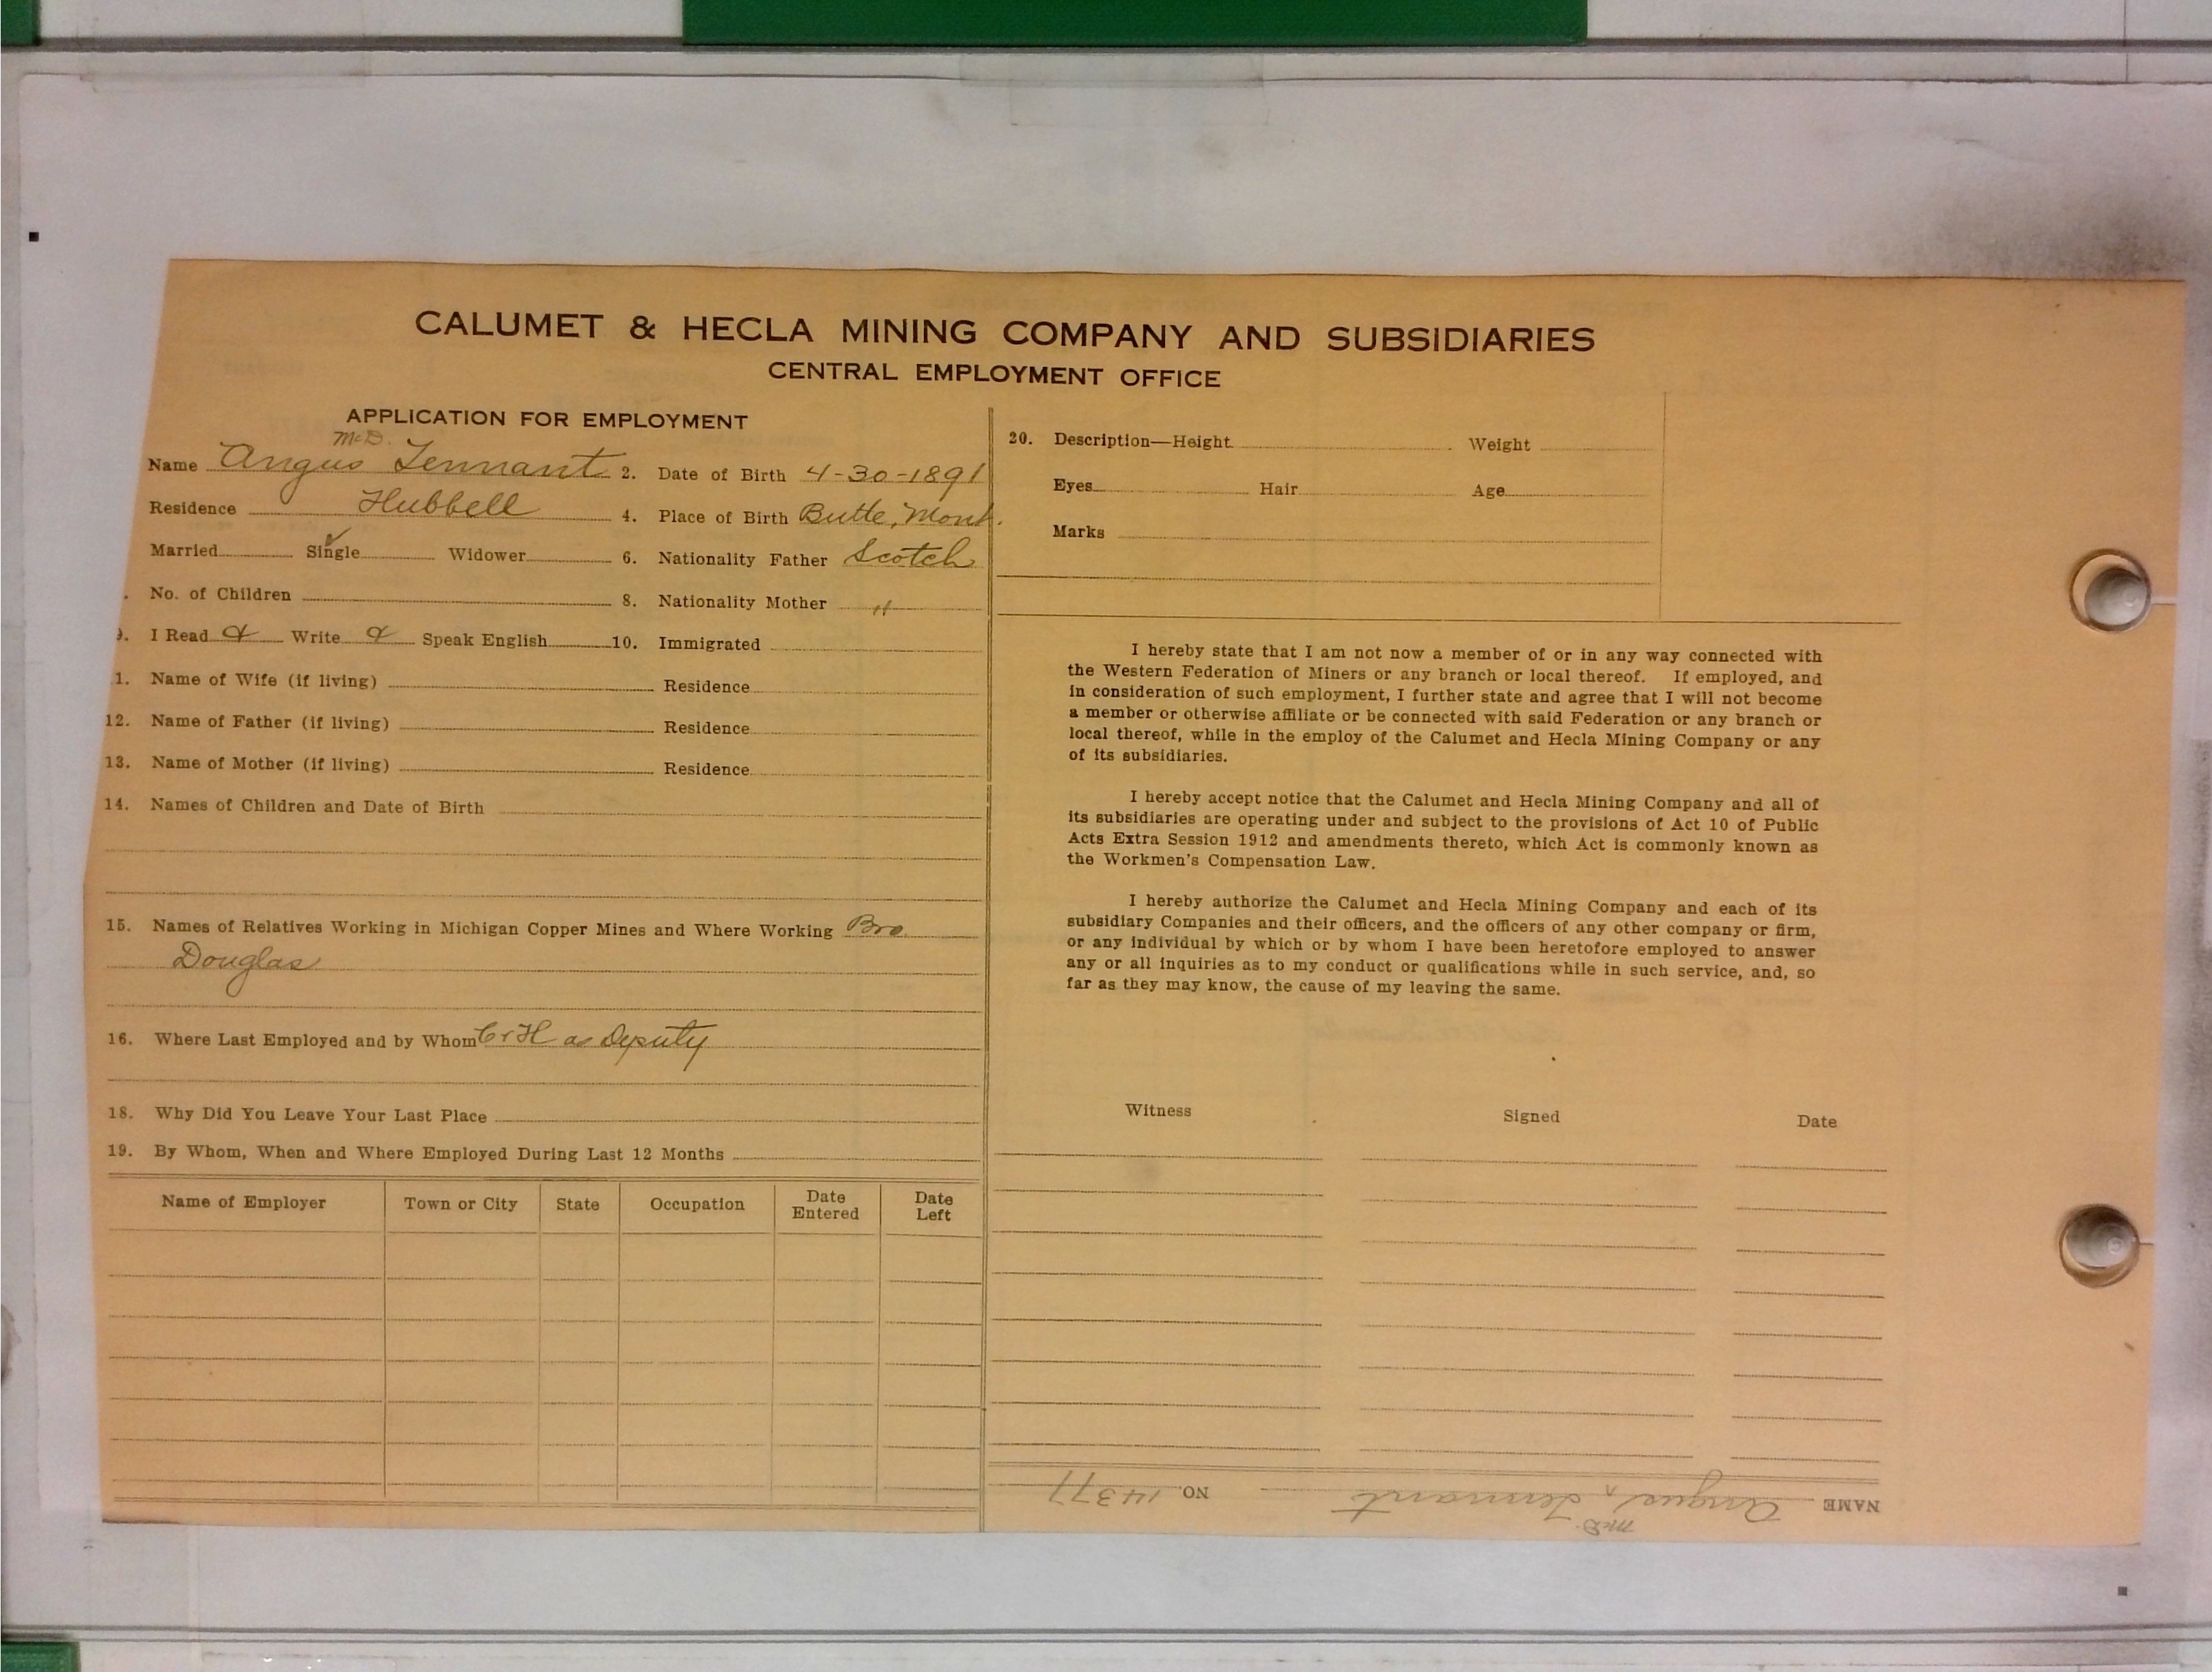 CALUMET & HECLA MINING COMPANY AND SUBSIDIARIES
CENTRAL EMPLOYMENT OFFICE
APPLICATION FOR EMPLOYMENT
McD.
Name Angus Tennant 2. Date of Birth 4-30-1891
Residence Hubbell 4. Place of Birth Butte, Mont.
Married Single ✓ Widower 6. Nationality Father Scotch
. No. of Children 8. Nationality Mother "
9. I Read & Write & Speak English 10. Immigrated
1. Name of Wife (if living) Residence
12. Name of Father (if living) Residence
13. Name of Mother (if living) Residence
14. Names of Children and Date of Birth
15. Names of Relatives Working in Michigan Copper Mines and Where Working Bro.
Douglas
16. Where Last Employed and by Whom C & H as Deputy
18. Why Did You Leave Your Last Place
19. By Whom, When and Where Employed During Last 12 Months
Name of Employer Town or City State Occupation Date Entered Date Left
20. Description—Height Weight
Eyes Hair Age
Marks
I hereby state that I am not now a member of or in any way connected with
the Western Federation of Miners or any branch or local thereof. If employed, and
in consideration of such employment, I further state and agree that I will not become
a member or otherwise affiliate or be connected with said Federation or any branch or
local thereof, while in the employ of the Calumet and Hecla Mining Company or any
of its subsidiaries.
I hereby accept notice that the Calumet and Hecla Mining Company and all of
its subsidiaries are operating under and subject to the provisions of Act 10 of Public
Acts Extra Session 1912 and amendments thereto, which Act is commonly known as
the Workmen's Compensation Law.
I hereby authorize the Calumet and Hecla Mining Company and each of its
subsidiary Companies and their officers, and the officers of any other company or firm,
or any individual by which or by whom I have been heretofore employed to answer
any or all inquiries as to my conduct or qualifications while in such service, and, so
far as they may know, the cause of my leaving the same.
Witness Signed Date
McD.
NAME Angus Tennant NO. 14377